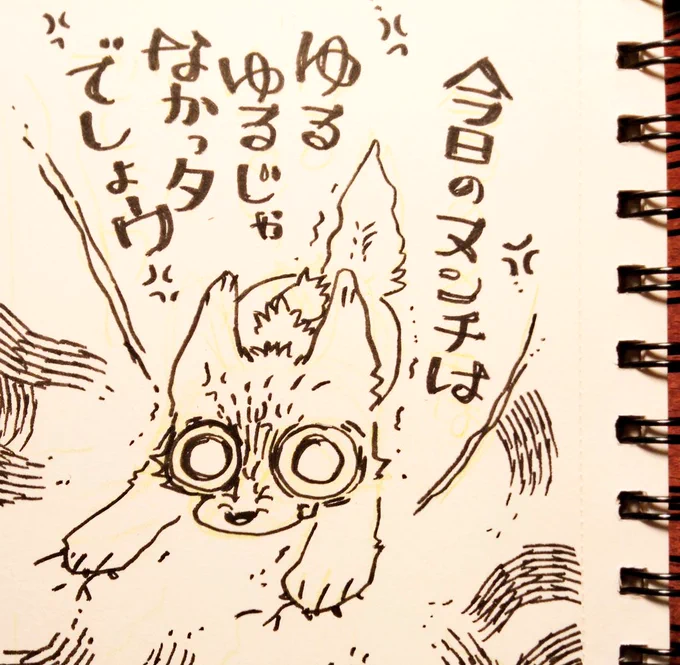 今日のヌンチは
ゆる
ゆるじゃ
なかっタ
でしょウ